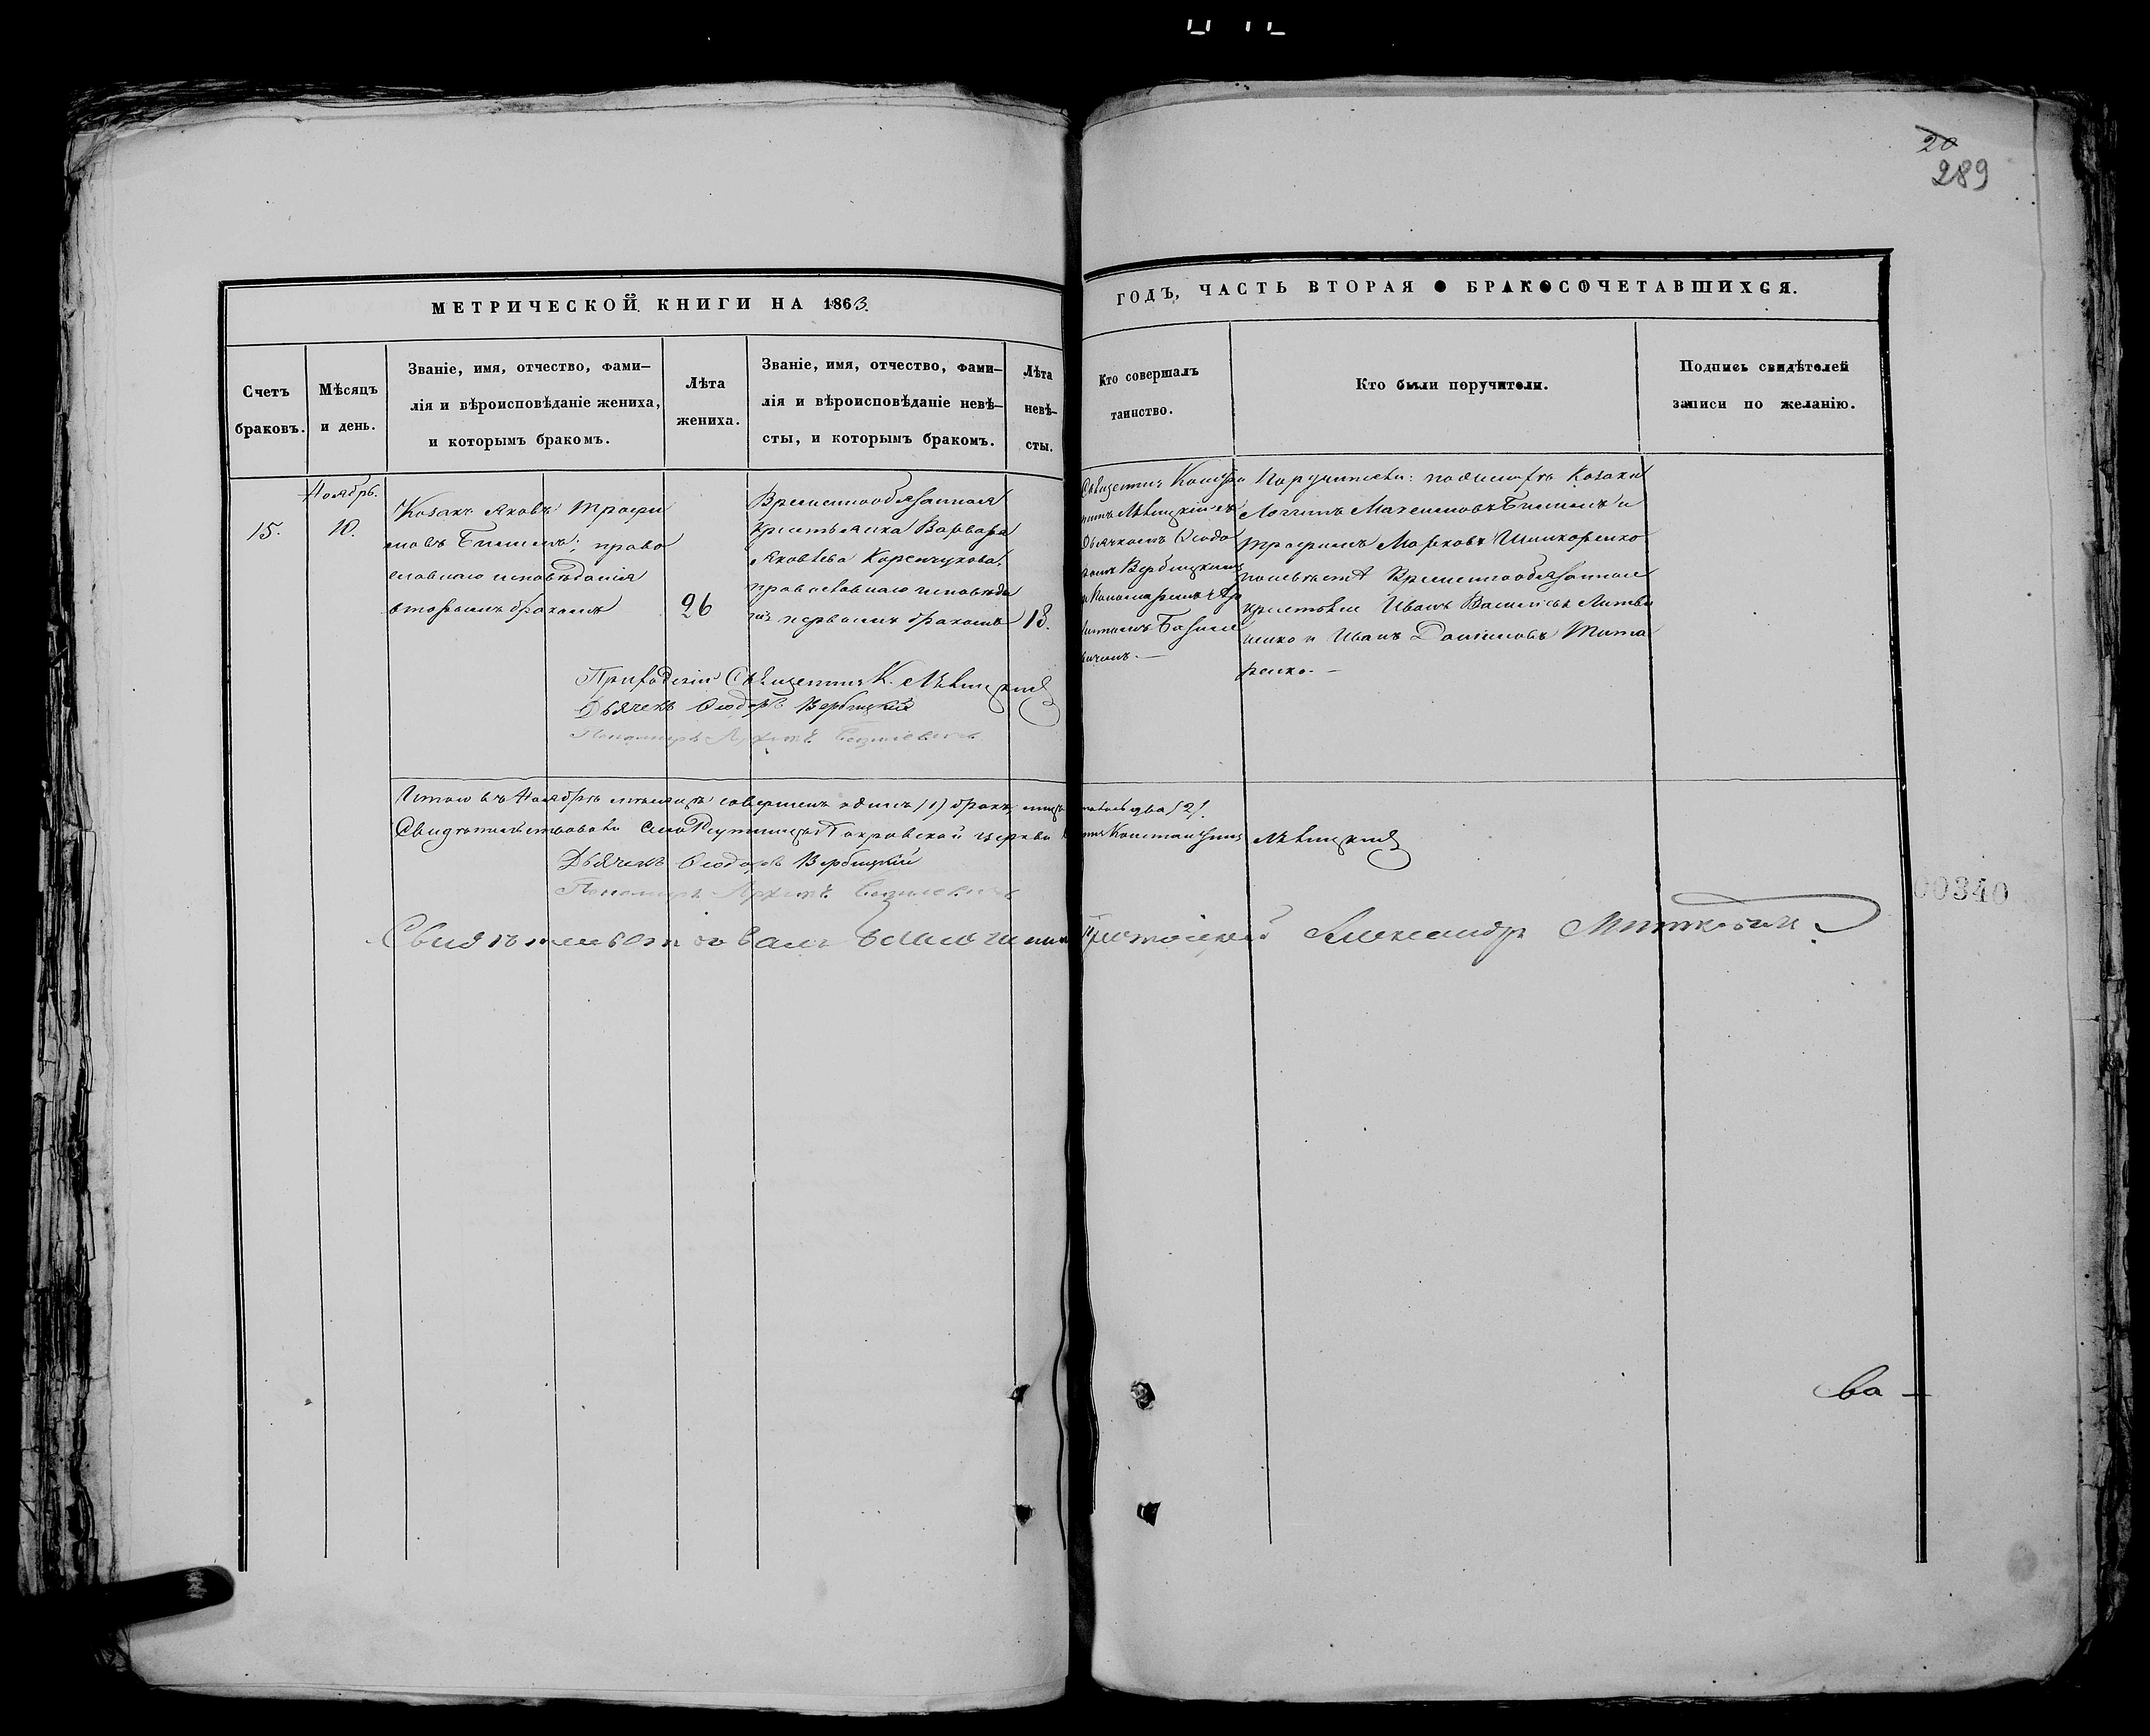 20
289
МЕТРИЧЕСКОЙ КНИГИ НА 1863.
ГОДЪ, ЧАСТЬ ВТОРАЯ О БРАКОСОЧЕТАВШИХСЯ.
Счетъ
браковъ.
Мѣсяцъ
и день.
Званіе, имя, отчество, фами–
лія и вѣроисповѣданіе жениха,
и которымъ бракомъ.
Лѣта
жениха.
Званіе, имя, отчество, фами–
лія и вѣроисповѣданіе невѣ–
сты, и которымъ бракомъ.
Лѣта
невѣ–
сты.
Кто совершалъ
таинство.
Кто были поручители.
Подпись свидѣтелей
записи по желанію.
15.
Ноябрь.
10.
Козакъ Яковъ Трофи
мовъ православнаго
славнаго исповѣданія
вторымъ бракомъ
26
Временнообязанная
крестьянка Варвара
Яковлева
православнаго исповѣда
нія первымъ бракомъ
18.
Священникъ Констан
тинъ Лѣвицкій съ
Дьячкомъ Ѳеодо
ромъ Вербицкимъ
и Пономаремъ
Поручители: по женихѣ Козаки
Логгинъ Максимовъ и
Трофимъ Марковъ
по невѣстѣ Временнообязанные
крестьяне Иванъ Васильевъ Литви
ненко и Иванъ Даниловъ Тита
ренко. —
Приходскій Священникъ К. Лѣвицкій
Дьячекъ Ѳеодоръ Вербицкій
Пономарь
Итого въ Ноябрѣ мѣсяцѣ совершенъ одинъ (1) бракъ, два (2).
Свидѣтельствовали Покровской церкви Константинъ Лѣвицкій
Дьячекъ Ѳеодоръ Вербицкій
Пономарь
00340
Свидѣтельствовалъ Александръ
ва –